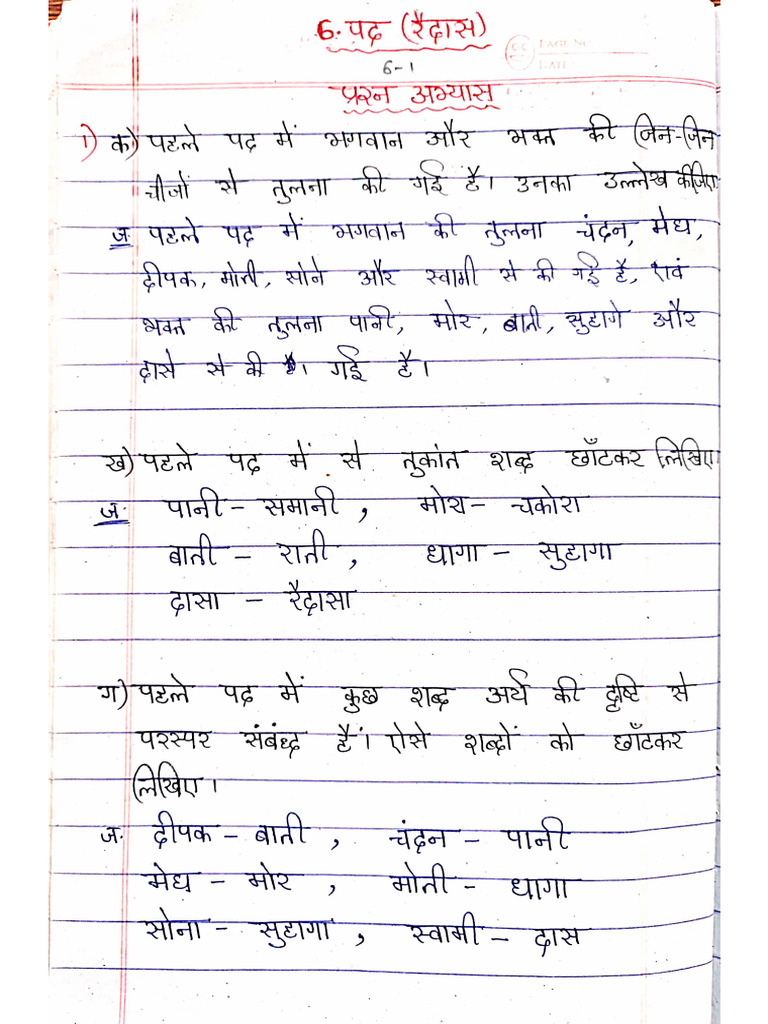 6. पद (रैदास)
PAGE No.
DATE
6-1
प्रश्न अभ्यास
1) क) पहले पद में भगवान और भक्त की जिन-जिन
चीजों से तुलना की गई है। उनका उल्लेख कीजिए
ज: पहले पद में भगवान की तुलना चंदन, मेघ,
दीपक, मोती, सोने और स्वामी से की गई है, एवं
भक्त की तुलना पानी, मोर, बाती, सुहागे और
दासे से की है। गई है।
ख) पहले पद में से तुकांत शब्द छाँटकर लिखिए
ज: पानी - समानी , मोरा - चकोरा
बाती - राती , धागा - सुहागा
दासा - रैदासा
ग) पहले पद में कुछ शब्द अर्थ की दृष्टि से
परस्पर संबंध्द हैं। ऐसे शब्दों को छाँटकर
लिखिए।
ज: दीपक - बाती , चंदन - पानी
मेघ - मोर , मोती - धागा
सोना - सुहागा , स्वामी - दास